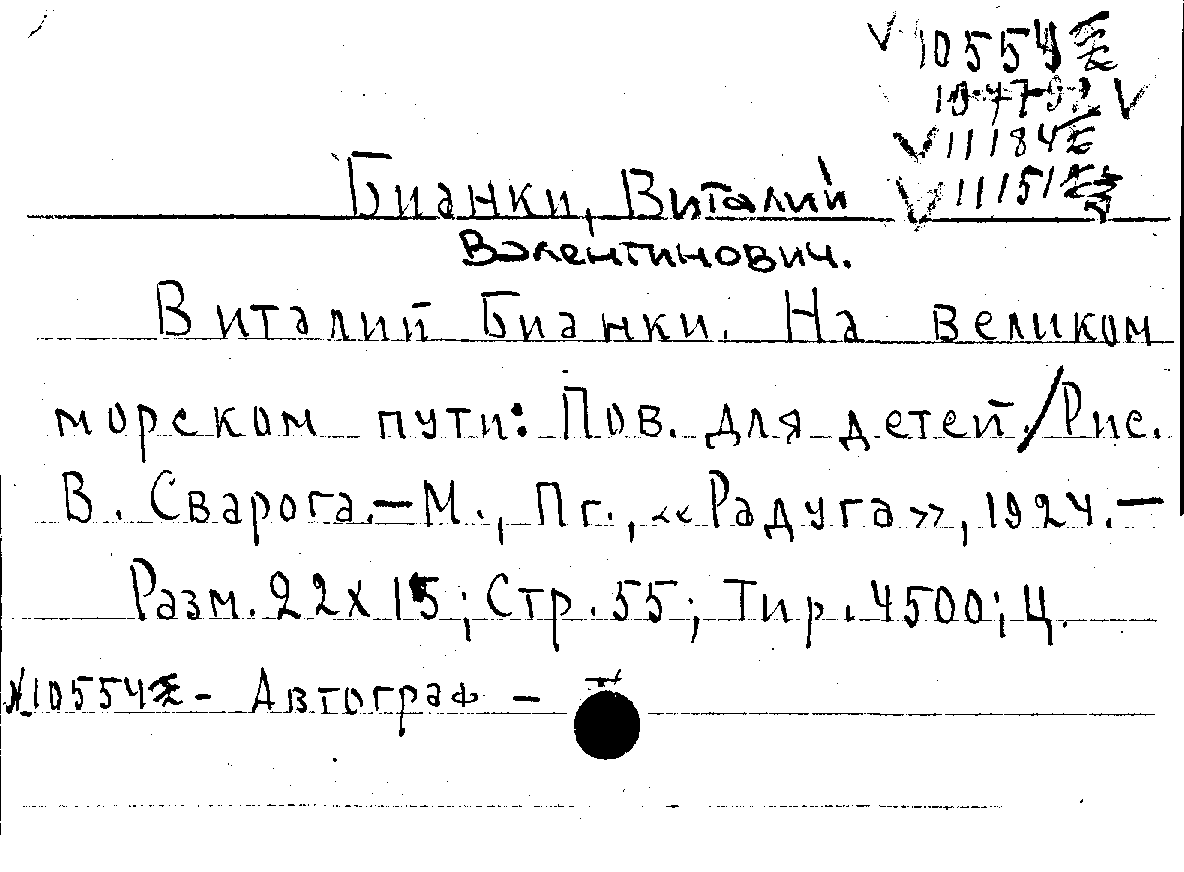 V 10554
V
V 11184
V 11151
Бианки, Виталий
Валентинович.
Виталий Бианки. На великом
морском пути: Пов. для детей./Рис.
В. Сварога.—М., Пг., «Радуга», 1924.—
Разм. 22х15; Стр. 55; Тир. 4500; Ц.
№10554 - Автограф -